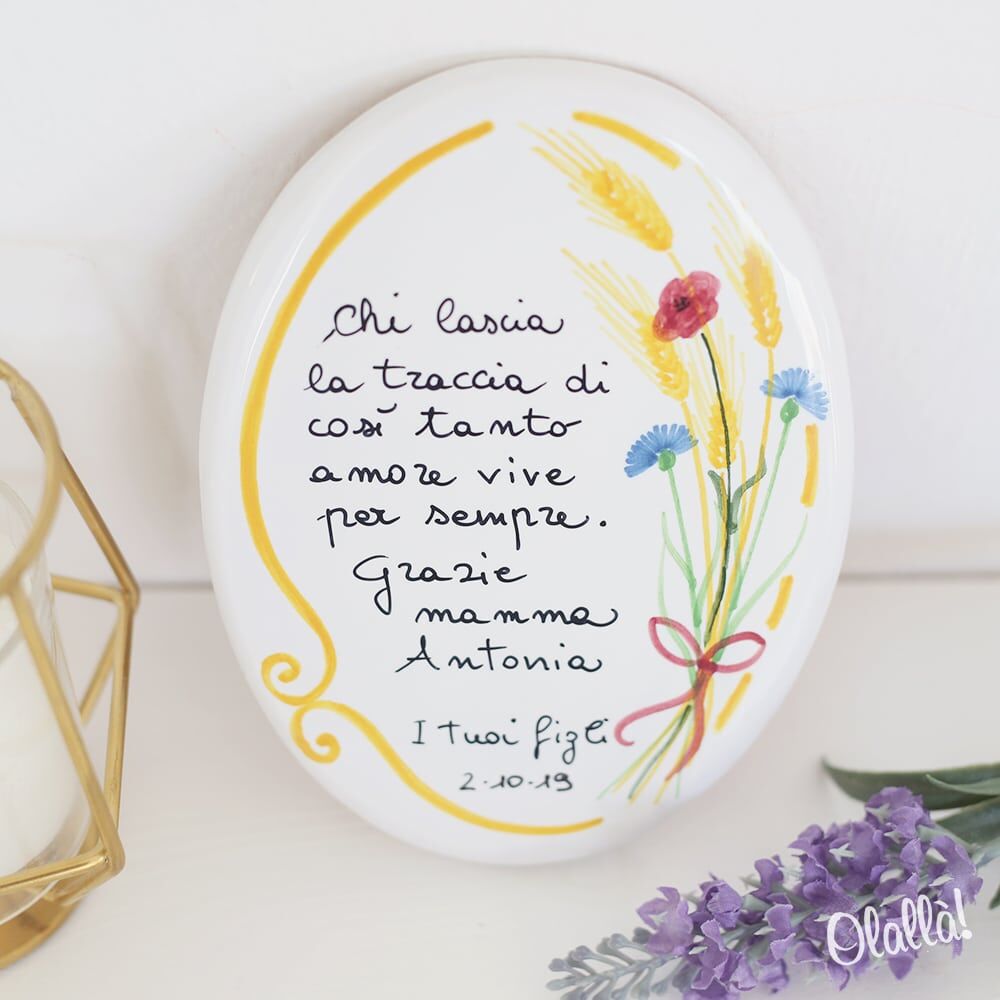 Chi lascia
la traccia di
così tanto
amore vive
per sempre.
Grazie
mamma
Antonia
I tuoi figli
2-10-19
Olallà!